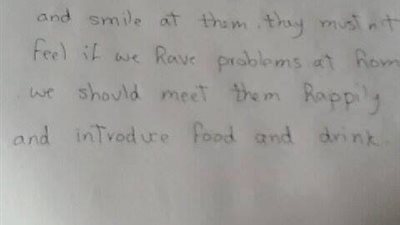 and smile at them. they must nt
feel if we have problems at hom
we should meet them happily
and introduce food and drink.